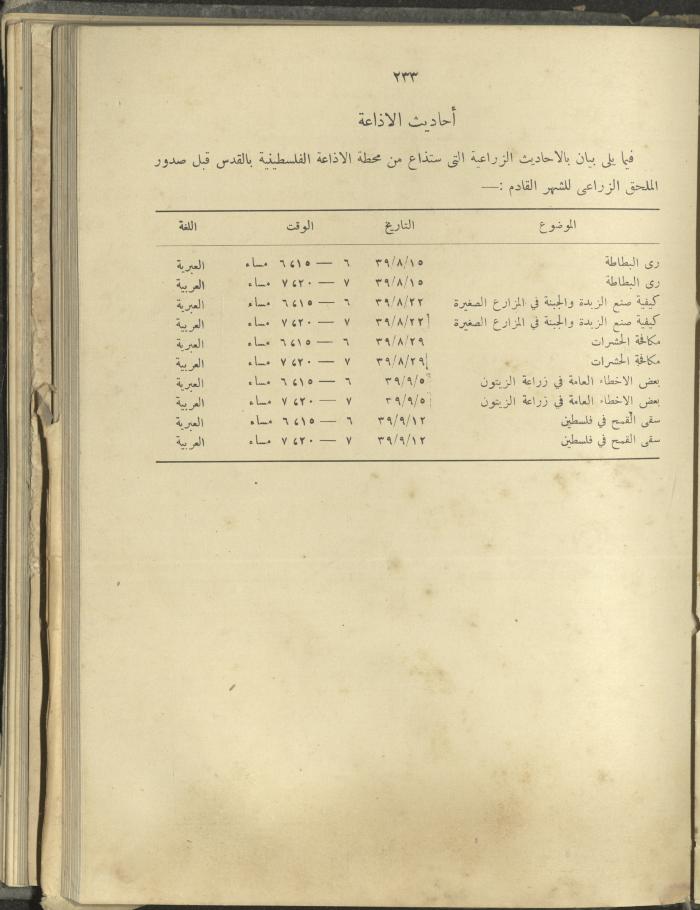 ٢٣٣
أحاديث الاذاعة
فيما يلى بيان بالاحاديث الزراعية التى ستذاع من محطة الاذاعة الفلسطينية بالقدس قبل صدور
الملحق الزراعى للشهر القادم :—
الموضوع التاريخ الوقت اللغة
رى البطاطة ٣٩/٨/١٥ ٦ — ٦٤١٥ مساء العبرية
رى البطاطة ٣٩/٨/١٥ ٧ — ٧٤٢٠ مساء العربية
كيفية صنع الزبدة والجبنة في المزارع الصغيرة ٣٩/٨/٢٢ ٦ — ٦٤١٥ مساء العبرية
كيفية صنع الزبدة والجبنة في المزارع الصغيرة ٣٩/٨/٢٢ ٧ — ٧٤٢٠ مساء العربية
مكافحة الحشرات ٣٩/٨/٢٩ ٦ — ٦٤١٥ مساء العبرية
مكافحة الحشرات ٣٩/٨/٢٩ ٧ — ٧٤٢٠ مساء العربية
بعض الاخطاء العامة في زراعة الزيتون ٣٩/٩/٥ ٦ — ٦٤١٥ مساء العبرية
بعض الاخطاء العامة في زراعة الزيتون ٣٩/٩/٥ ٧ — ٧٤٢٠ مساء العربية
سقى القمح في فلسطين ٣٩/٩/١٢ ٦ — ٦٤١٥ مساء العبرية
سقى القمح في فلسطين ٣٩/٩/١٢ ٧ — ٧٤٢٠ مساء العربية